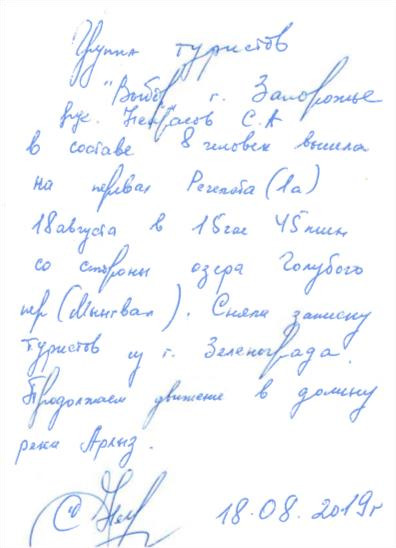 Группа туристов
"Выбор" г. Запорожье
рук. Некрасов С.А
в составе 8 человек вышла
на перевал Регепота (1а)
18 августа в 15 час 45 мин
со стороны озера Голубого
пер (Мынгвал). Сняли записку
туристов из г. Зеленограда.
Продолжаем движение в долину
реки Архыз.
18.08.2019г